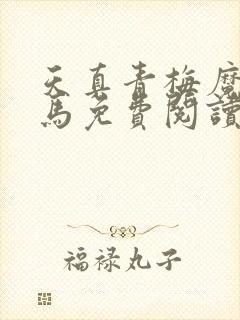 天真青梅魔
馬免費閱讀
福禄丸子